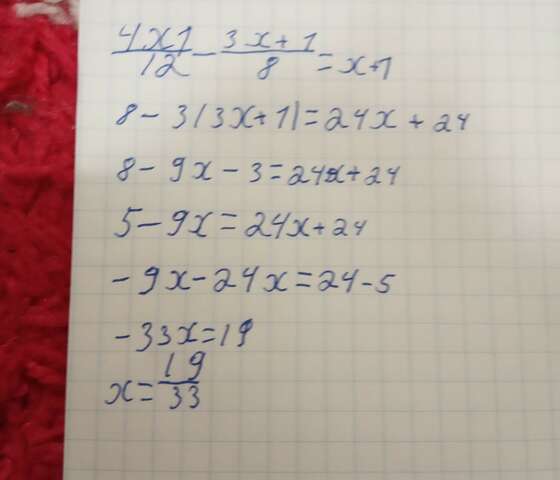 4x1/12 - 3x+1/8 = x+1
8-3(3x+1)=24x+24
8-9x-3=24x+24
5-9x=24x+24
-9x-24x=24-5
-33x=19
x=19/33